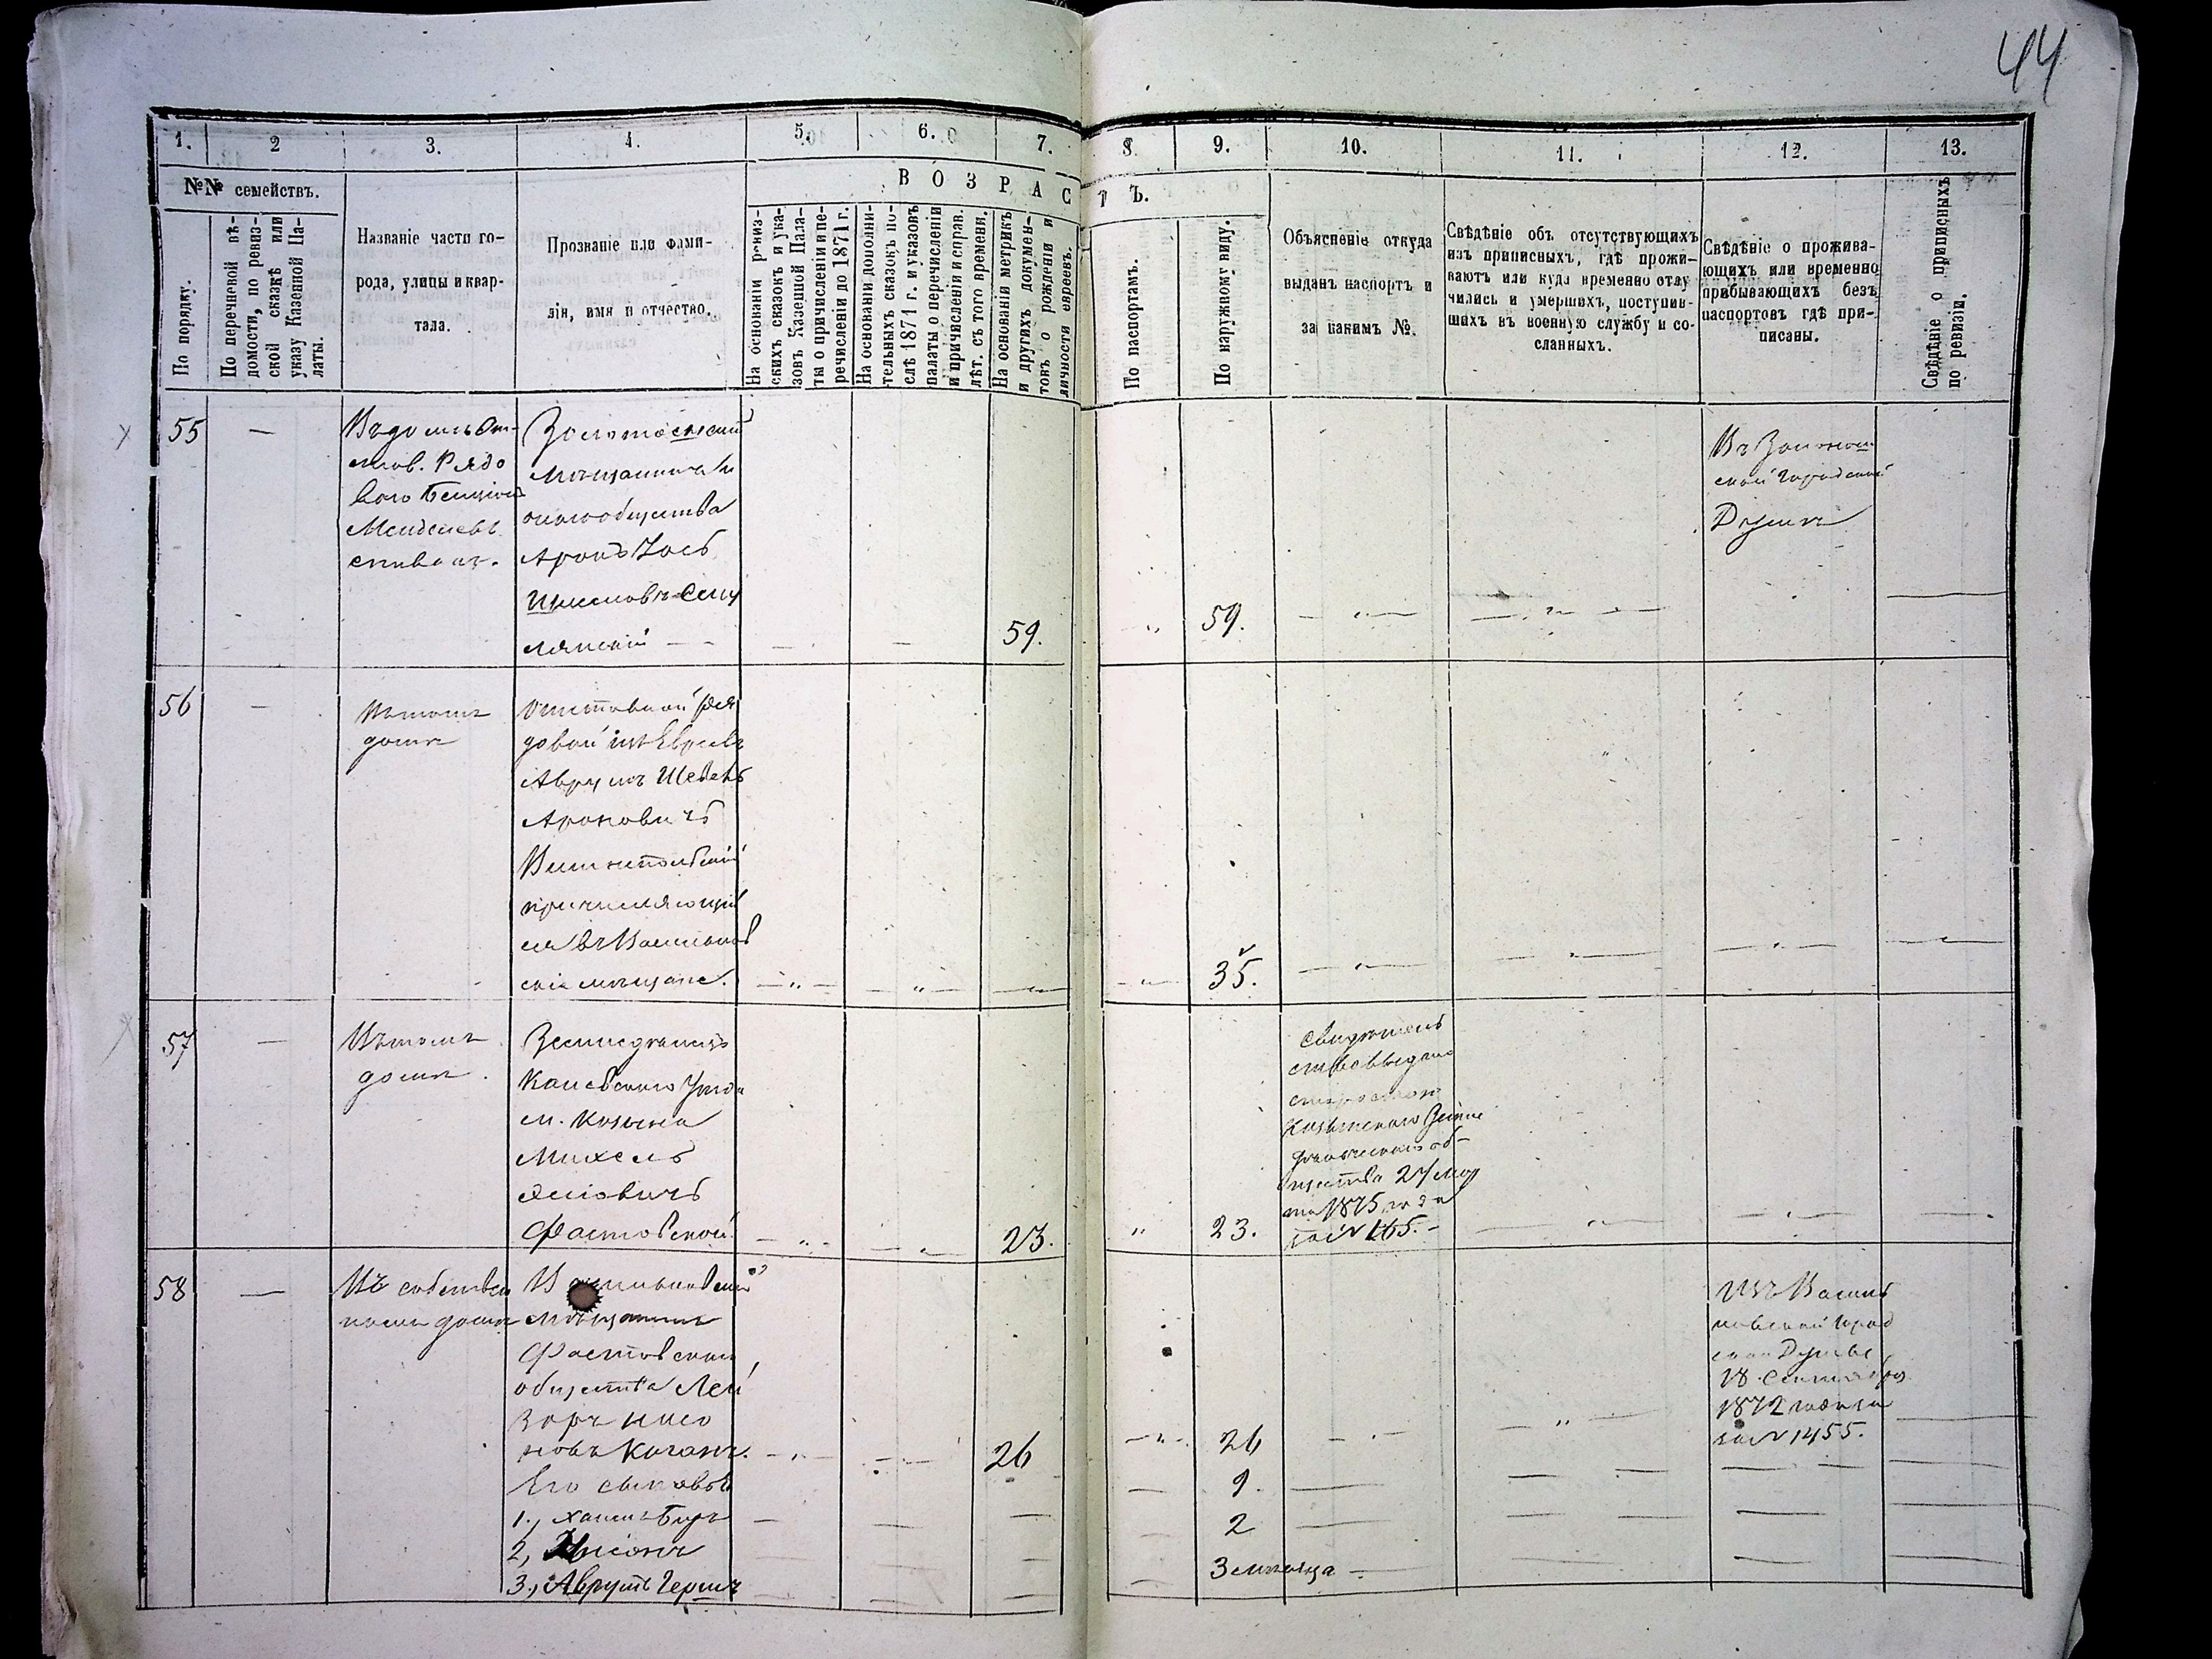 44
1. 2 3. 4. 5. 6. 7. 8. 9. 10. 11. 12. 13.
№№ семействъ.
ВОЗРАСТЪ.
По порядку.
По перечневой вѣ-
домости, по ревиз-
ской сказкѣ или
указу Казенной Па-
латы.
Названіе части го-
рода, улицы и квар-
тала.
Прозваніе или фами-
лія, имя и отчество.
На основаніи ревиз-
скихъ сказокъ и ука-
зовъ Казенной Пала-
ты о причисленіи и пе-
речисленіи до 1871 г.
На основаніи дополни-
тельныхъ сказокъ по-
слѣ 1871 г. и указовъ
палаты о перечисленіи
и причисленіи и справ.
лѣт. съ того времени.
На основаніи метрикъ
и другихъ докумен-
товъ о рожденіи и
личности евреевъ.
По паспортамъ.
По наружному виду.
Объясненіе откуда
выданъ паспортъ и
за какимъ №.
Свѣдѣніе объ отсутствующихъ
изъ приписныхъ, гдѣ прожи-
ваютъ или куда временно отлу
чились и умершихъ, поступив-
шихъ въ военную службу и со-
сланныхъ.
Свѣдѣніе о прожива-
ющихъ или временно
прибывающихъ безъ
паспортовъ гдѣ при-
писаны.
Свѣдѣніе о приписныхъ
по ревизіи.
55 —
Въ домѣ От-
став. Рядо
вого Бенціона
Менделевъ
Золотоніскій
мѣщанинъ
общества
Аронъ Іось
лянскій — —
59. 59.
Въ Золотонош
ской Городской
Думѣ
56 —
Въ томъ
домѣ
Отставной ря
довой изъ Евреевъ
Аврумъ
Ароновичъ
причисляющій
ся въ Васильков
скіе мѣщане.
35.
57 —
Въ томъ
домѣ.
Земледѣлецъ
Каневскаго Уѣзда
м. Козына
Михель
Фастовской
23. 23.
Свидѣтель
ство выдано
старостою
Козынскаго Земле
дѣльческаго об-
щества 27 мар
та 1875 года
за № 165. -
58 —
Въ собствен
номъ домѣ
Васильковскій
мѣщанинъ
Фастовскаго
общества Лей
зоръ Нисо
новъ Коганъ.
26 26
Изъ Василь
ковской Город
ской Думы
18 Сентября
1872 года
за № 1455.
Его сыновья
1., Хаимъ Беръ 9
2, Нисонъ 2
3., Аврумъ Гершъ 3 мѣсяца